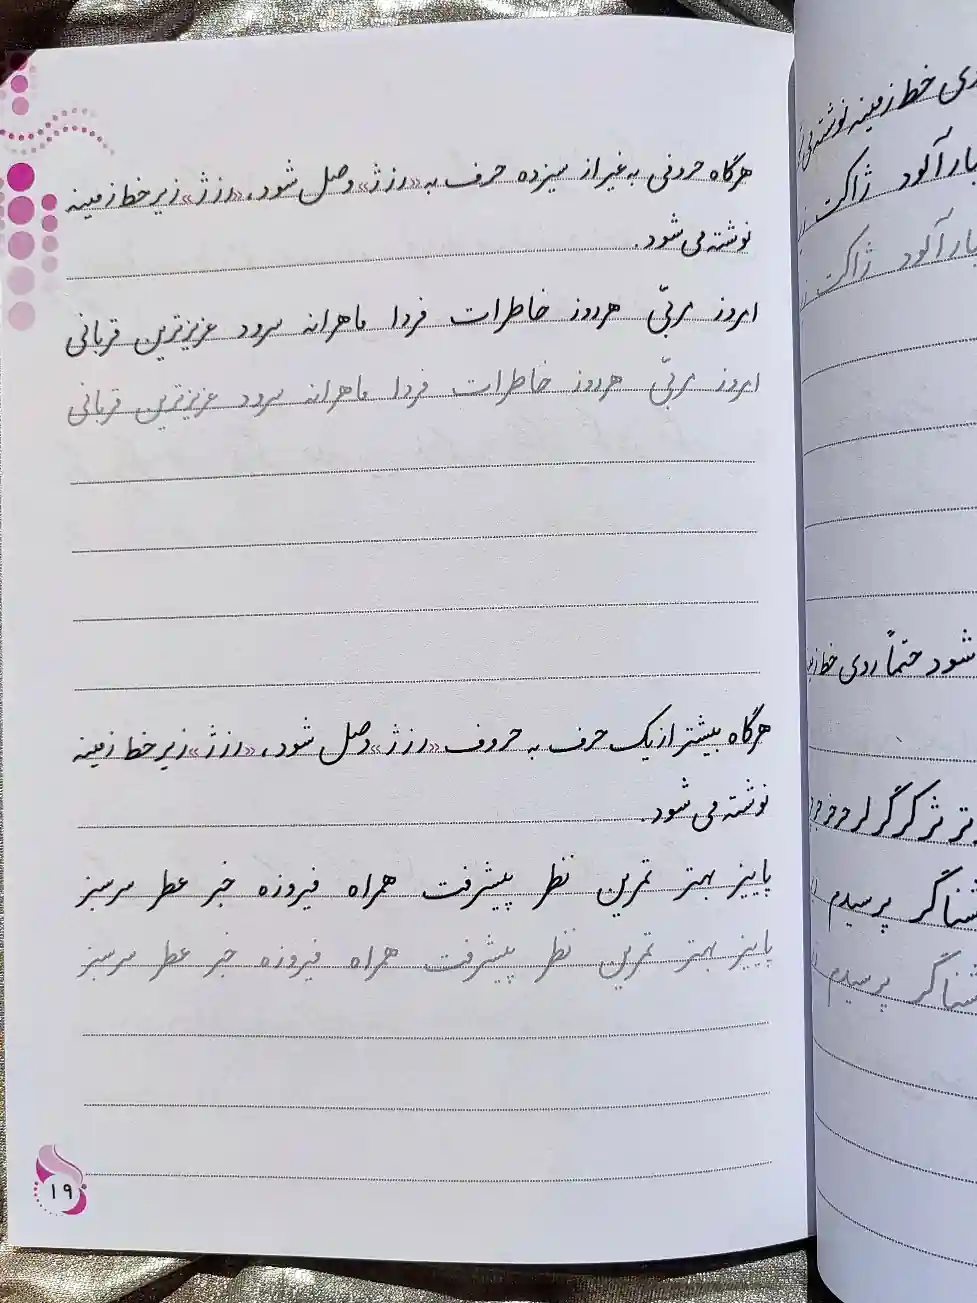 هرگاه حروفی به غیر از سیزده حرف به «ر ز ژ» وصل شود، «ر ز ژ» زیر خط زمینه
نوشته می شود.
امروز مربّی هرروز خاطرات فردا ماهرانه سرود عزیزترین قربانی
امروز مربّی هرروز خاطرات فردا ماهرانه سرود عزیزترین قربانی
هرگاه بیشتر از یک حرف به حروف «ر ز ژ» وصل شود، «ر ز ژ» زیر خط زمینه
نوشته می شود.
پاییز بهتر تمرین نظر پیشرفت همراه فیروزه خبر عطر سرسبز
پاییز بهتر تمرین نظر پیشرفت همراه فیروزه خبر عطر سرسبز
۱۹
خط زمینه نوشته می
ژاکت
ژاکت
شود حتماً روی خط
پرسیدم
پرسیدم